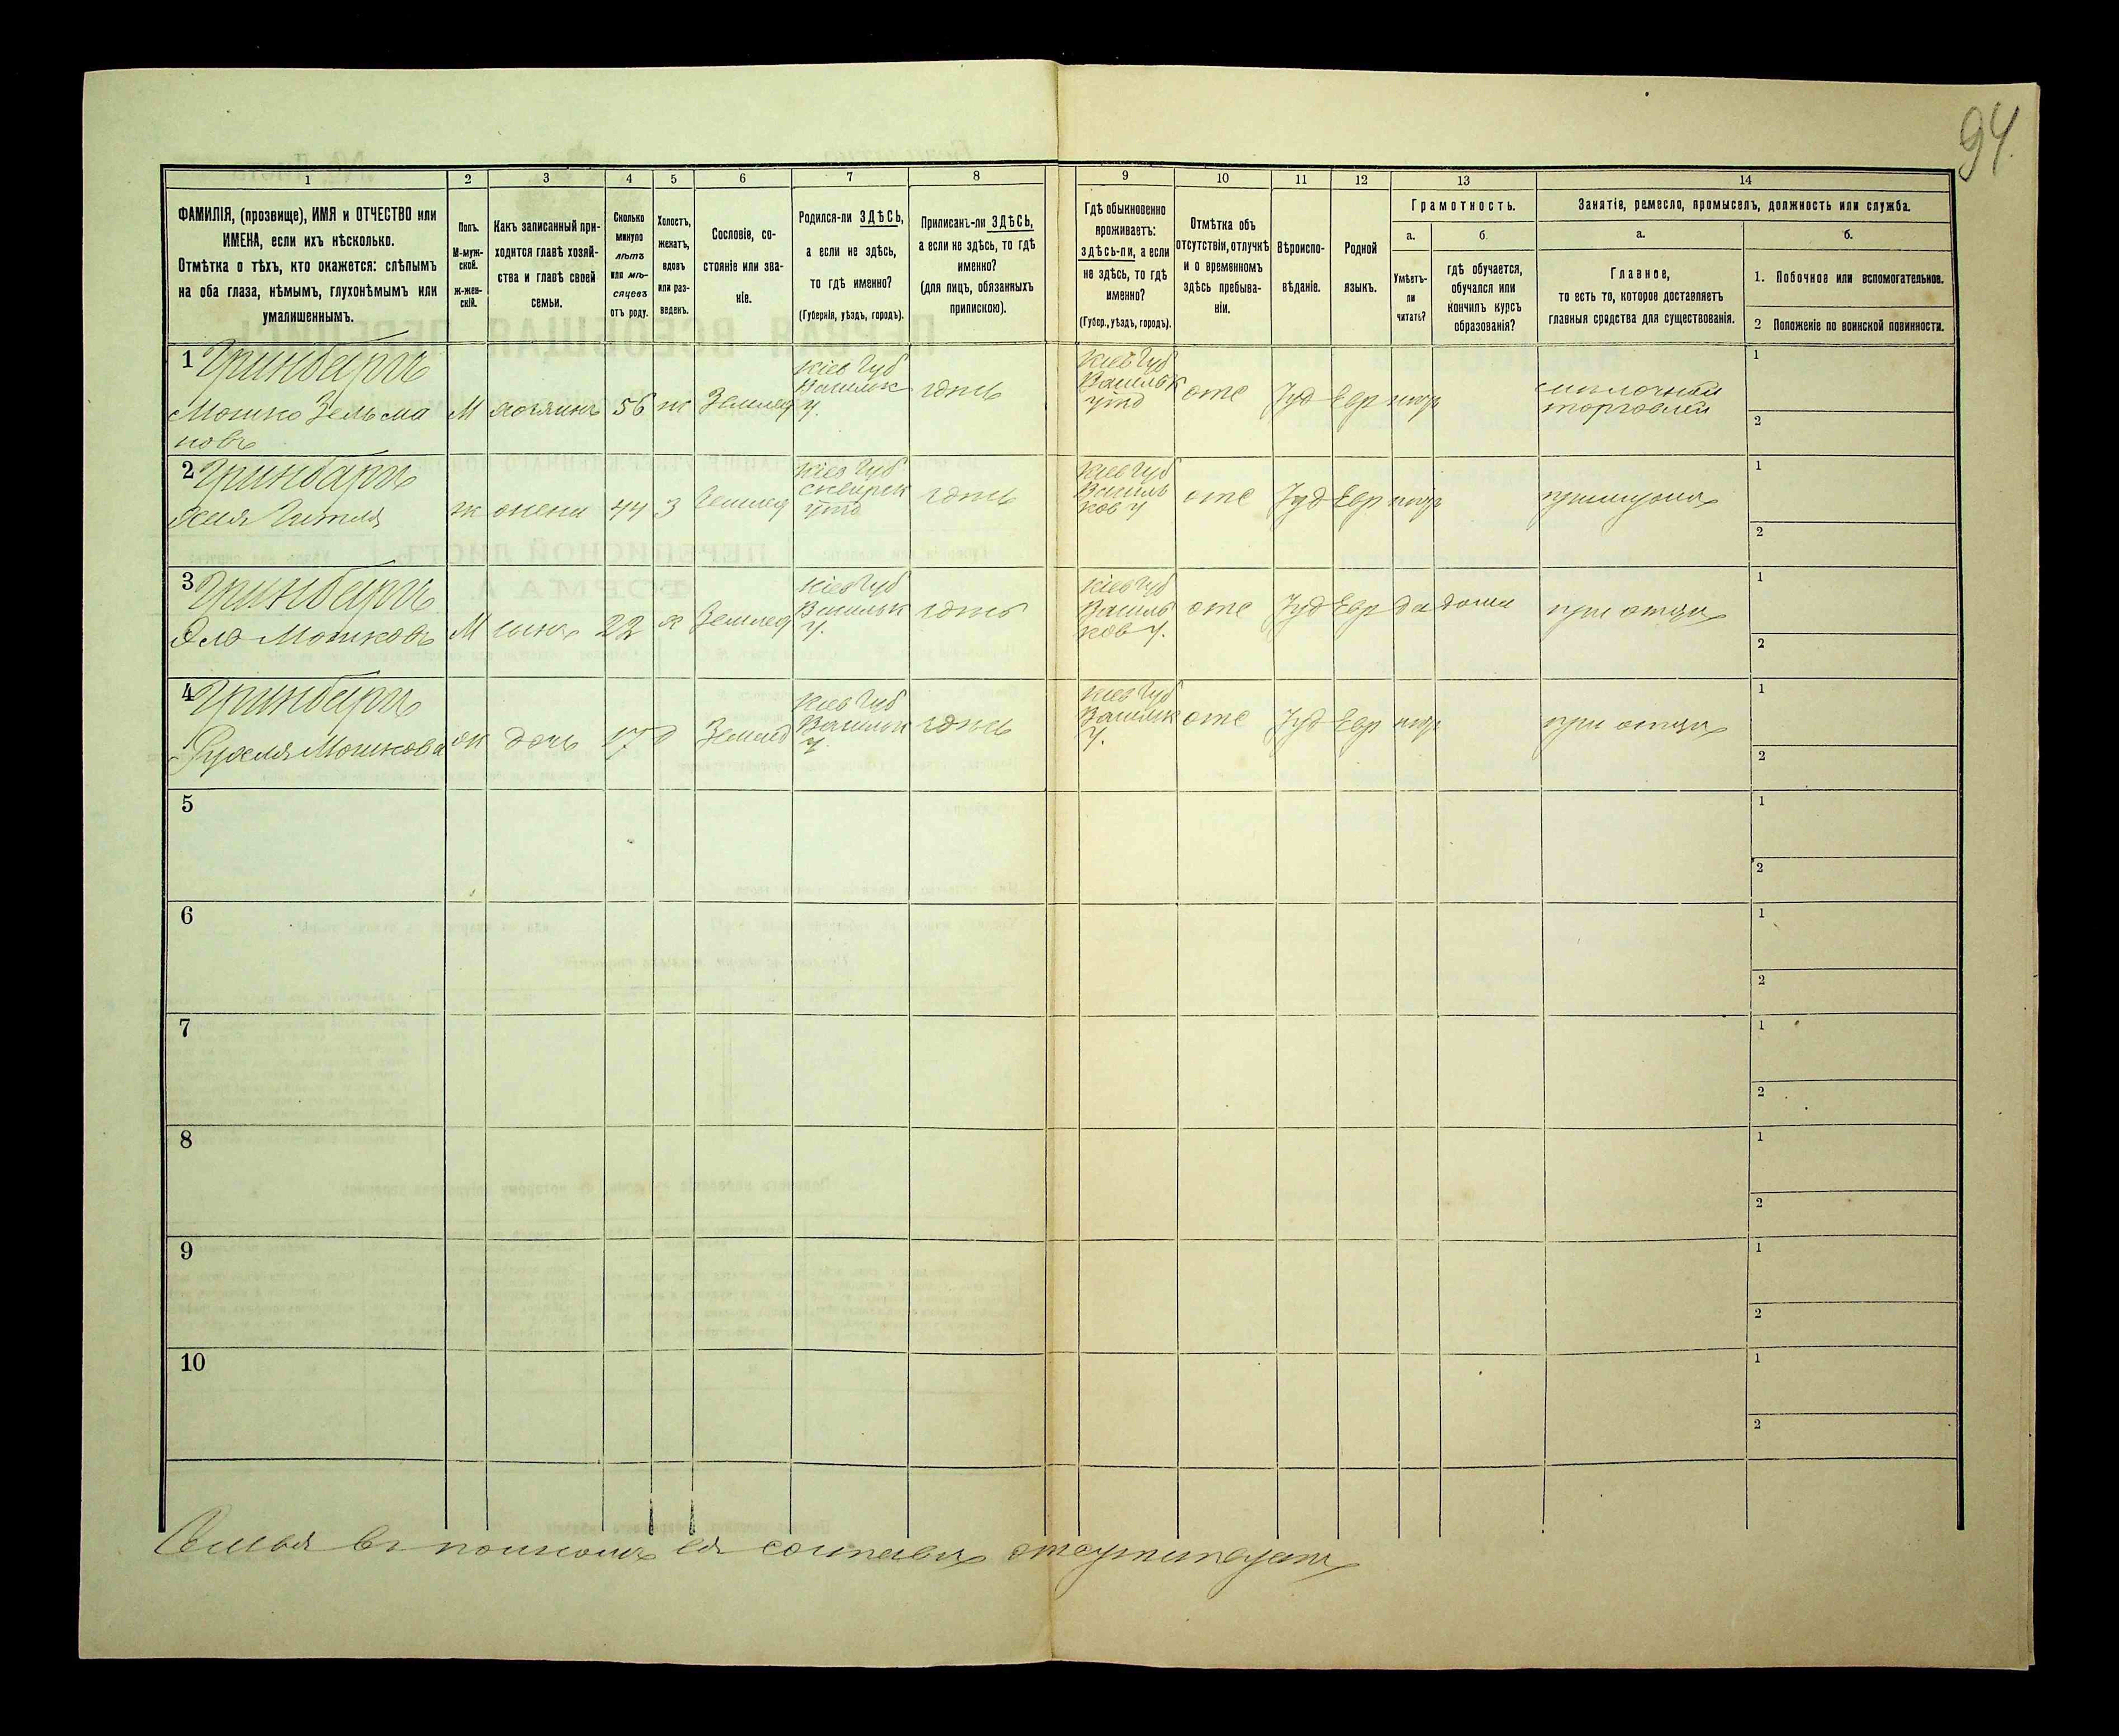 94.
1
2
3
4
5
6
7
8
9
10
11
12
13
14
ФАМИЛІЯ, (прозвище), ИМЯ и ОТЧЕСТВО или
ИМЕНА, если ихъ нѣсколько.
Отмѣтка о тѣхъ, кто окажется: слѣпымъ
на оба глаза, нѣмымъ, глухонѣмымъ или
умалишеннымъ.
Полъ.
М-муж-
ской.
ж-жен-
скій.
Какъ записанный при-
ходится главѣ хозяй-
ства и главѣ своей
семьи.
Сколько
минуло
лѣтъ
или мѣ-
сяцевъ
отъ роду.
Холостъ,
женатъ,
вдовъ
или раз-
веденъ.
Сословіе, со-
стояніе или зва-
ніе.
Родился-ли ЗДѢСЬ,
а если не здѣсь,
то гдѣ именно?
(Губернія, уѣздъ, городъ).
Приписанъ-ли ЗДѢСЬ,
а если не здѣсь, то гдѣ
именно?
(для лицъ, обязанныхъ
припискою).
Гдѣ обыкновенно
проживаетъ:
здѣсь-ли, а если
не здѣсь, то гдѣ
именно?
(Губер., уѣздъ, городъ).
Отмѣтка объ
отсутствіи, отлучкѣ
и о временномъ
здѣсь пребыва-
ніи.
Вѣроиспо-
вѣданіе.
Родной
языкъ.
Грамотность.
а.
Умѣетъ-
ли
читать?
б.
гдѣ обучается,
обучался или
кончилъ курсъ
образованія?
Занятіе, ремесло, промыселъ, должность или служба.
а.
Главное,
то есть то, которое доставляетъ
главныя средства для существованія.
б.
1. Побочное или вспомогательное.
2 Положеніе по воинской повинности.
1 Гринбергъ
Мошко Зельма
новъ
М
хозяинъ
56
ж
Землед
Кіев Губ
Васильк
У.
здѣсь
Кіев Губ
Васильк
уѣзд
отс
Іуд
Евр
негр
мѣлочной
торговлей
1
2
2 Гринбергъ
Гитля
ж
жена
44
З
Землед
Кіев Губ
сквирск
уѣзд
здѣсь
Кіев Губ
Василь
ков У
отс
Іуд
Евр
негр
при мужѣ
1
2
3 Гринбергъ
Мошковъ
М
сынъ
22
х
Землед
Кіев Губ
Васильк
У.
здѣсь
Кіев Губ
Василь
ков У.
отс
Іуд
Евр
да
дома
при отцѣ
1
2
4 Гринбергъ
Рухля Мошкова
ж
дочь
17
д
Землед
Кіев Губ
Васильк
У.
здѣсь
Кіев Губ
Васильк
У.
отс
Іуд
Евр
негр
при отцѣ
1
2
5
1
2
6
1
2
7
1
2
8
1
2
9
1
2
10
1
2
Семья въ полномъ ея составѣ отсутствуетъ